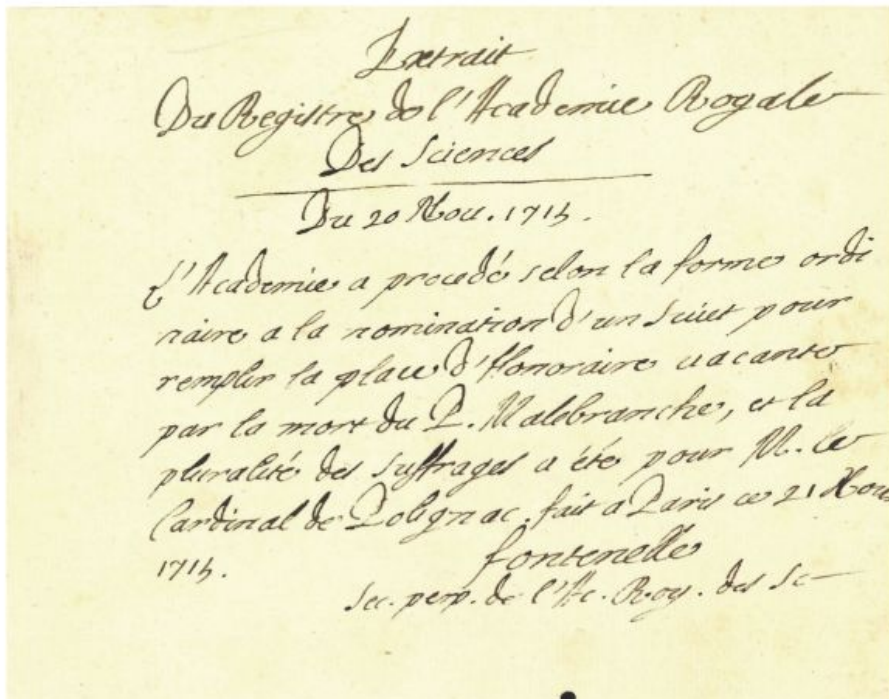 Extrait
Du Registre de l'Academie Royale
Des Sciences
Du 20 Nov. 1715.
L'Academie a procedé selon la forme ordi
naire a la nomination d'un Suiet pour
remplir la place d'Honoraire vacante
par la mort du P. Malebranche, et la
pluralité des suffrages a été pour M. le
Cardinal de Polignac. fait a Paris ce 21 Nov.
1715.
fontenelle
Sec. perp. de l'Ac. Roy. des Sc